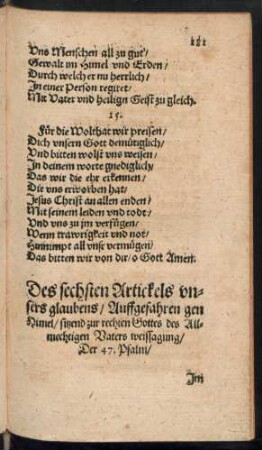 181
Vns Menschen all zu gut/
Gewalt im Himel vnd Erden/
Durch welch er nu herrlich/
In einer Person regiret/
Mit Vater vnd heilign Geist zu gleich.
15.
Für die Wolthat wir preisen/
Dich vnsern Gott demütiglich/
Vnd bitten wolst vns weisen/
In deinem worte gnediglich/
Das wir die ehr erkennen/
Die vns erworben hat/
Jesus Christ an allen enden/
Mit seinem leiden vnd todt/
Vnd vns zu jm verfügen/
Wenn trawrigkeit vnd not/
Hinnimpt all vnse vermügen/
Das bitten wir von dir/o Gott Amen.
Des sechsten Artickels vn-
sers glaubens/Auffgefahren gen
Himel/sitzend zur rechten Gottes des All-
mechtigen Vaters weissagung/
Der 47. Psalm/
Im